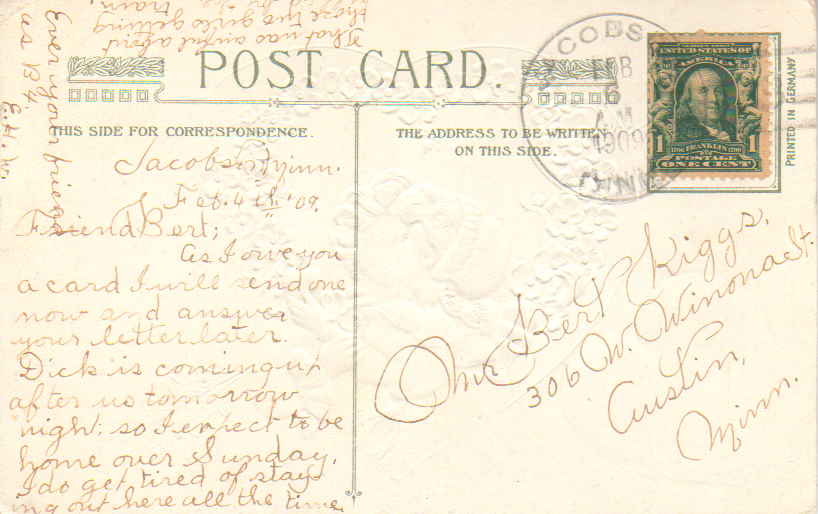 POST CARD.
THIS SIDE FOR CORRESPONDENCE.
THE ADDRESS TO BE WRITTEN
ON THIS SIDE.
Jacobs Minn.
Feb. 4th, '09.
Friend Bert;
As I owe you
a card I will send one
now and answer
your letter later.
Dick is coming up
after us tomorrow
night; so I expect to be
home over Sunday.
I do get tired of stay-
ing out here all the time.
That was awful about
those two girls getting
train.
Ever your friend
as B4
E. H. W.
Mr Bert Kiggs,
306 W. Winona St.
Austin,
Minn.
COBS
FEB
5
AM
1909
MINN
UNITED STATES OF
AMERICA
1 1706 FRANKLIN 1790 1
POSTAGE
ONE CENT
PRINTED IN GERMANY